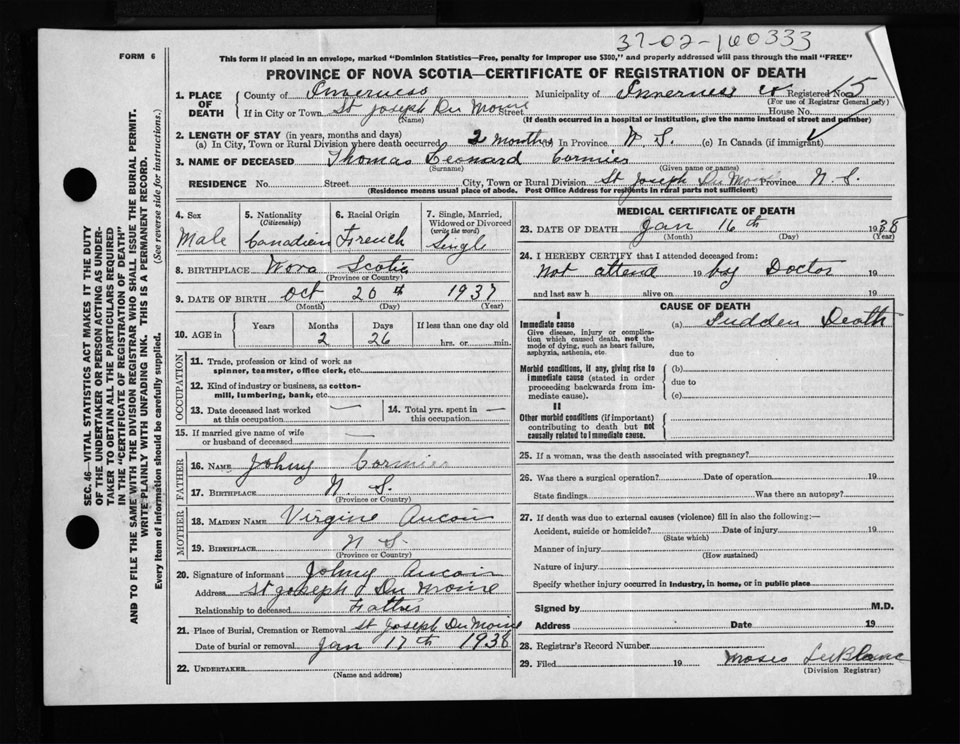 37-02-160333
FORM 6
This form if placed in an envelope, marked "Dominion Statistics—Free, penalty for improper use $300," and properly addressed will pass through the mail "FREE"
PROVINCE OF NOVA SCOTIA—CERTIFICATE OF REGISTRATION OF DEATH
SEC. 46—VITAL STATISTICS ACT MAKES IT THE DUTY
OF THE UNDERTAKER OR PERSON ACTING AS UNDER-
TAKER TO OBTAIN ALL THE PARTICULARS REQUIRED
IN THE "CERTIFICATE OF REGISTRATION OF DEATH"
AND TO FILE THE SAME WITH THE DIVISION REGISTRAR WHO SHALL ISSUE THE BURIAL PERMIT.
WRITE PLAINLY WITH UNFADING INK. THIS IS A PERMANENT RECORD.
Every item of information should be carefully supplied. (See reverse side for instructions.)
1. PLACE OF DEATH
County of Inverness Municipality of Inverness Co Registered No. 15
(For use of Registrar General only)
If in City or Town St Joseph Du Moine Street House No.
(Name) (If death occurred in a hospital or institution, give the name instead of street and number)
2. LENGTH OF STAY (in years, months and days)
(a) In City, Town or Rural Division where death occurred 2 months In Province N. S. (c) In Canada (if immigrant)
3. NAME OF DECEASED Thomas Leonard Cormier
(Surname) (Given name or names)
RESIDENCE No. Street City, Town or Rural Division St Joseph Du Moine Province N. S.
(Residence means usual place of abode. Post Office Address for residents in rural parts not sufficient)
4. Sex 5. Nationality (Citizenship) 6. Racial Origin 7. Single, Married, Widowed or Divorced (write the word)
Male Canadian French Singl
8. BIRTHPLACE Nova Scotia
(Province or Country)
9. DATE OF BIRTH Oct 20th 1937
(Month) (Day) (Year)
10. AGE in Years Months Days If less than one day old
2 26 hrs. or min.
OCCUPATION
11. Trade, profession or kind of work as
spinner, teamster, office clerk, etc.
12. Kind of industry or business, as cotton-
mill, lumbering, bank, etc.
13. Date deceased last worked at this occupation — 14. Total yrs. spent in this occupation —
15. If married give name of wife
or husband of deceased —
FATHER
16. NAME Johny Cormier
17. BIRTHPLACE N. S.
(Province or Country)
MOTHER
18. MAIDEN NAME Virgine Aucoin
19. BIRTHPLACE N S.
(Province or Country)
20. Signature of informant Johny Aucoin
Address St Joseph Du Moine
Relationship to deceased Father
21. Place of Burial, Cremation or Removal St Joseph Du Moine
Date of burial or removal Jan 17th 1938
22. UNDERTAKER
(Name and address)
MEDICAL CERTIFICATE OF DEATH
23. DATE OF DEATH Jan 16th 1938
(Month) (Day) (Year)
24. I HEREBY CERTIFY that I attended deceased from:
Not attend 19 by Doctor 19
and last saw h alive on 19
CAUSE OF DEATH
I
Immediate cause (a) Sudden Death
Give disease, injury or complica-
tion which caused death, not the
mode of dying, such as heart failure,
asphyxia, asthenia, etc. due to
Morbid conditions, if any, giving rise to (b)
immediate cause (stated in order due to
proceeding backwards from im-
mediate cause). (c)
II
Other morbid conditions (if important)
contributing to death but not
causally related to immediate cause.
25. If a woman, was the death associated with pregnancy?
26. Was there a surgical operation? Date of operation 19
State findings Was there an autopsy?
27. If death was due to external causes (violence) fill in also the following:—
Accident, suicide or homicide? Date of injury 19
(State which)
Manner of injury
(How sustained)
Nature of injury
Specify whether injury occurred in Industry, in home, or in public place
Signed by M.D.
Address Date 19
28. Registrar's Record Number
29. Filed 19 Moses LeBlanc
(Division Registrar)